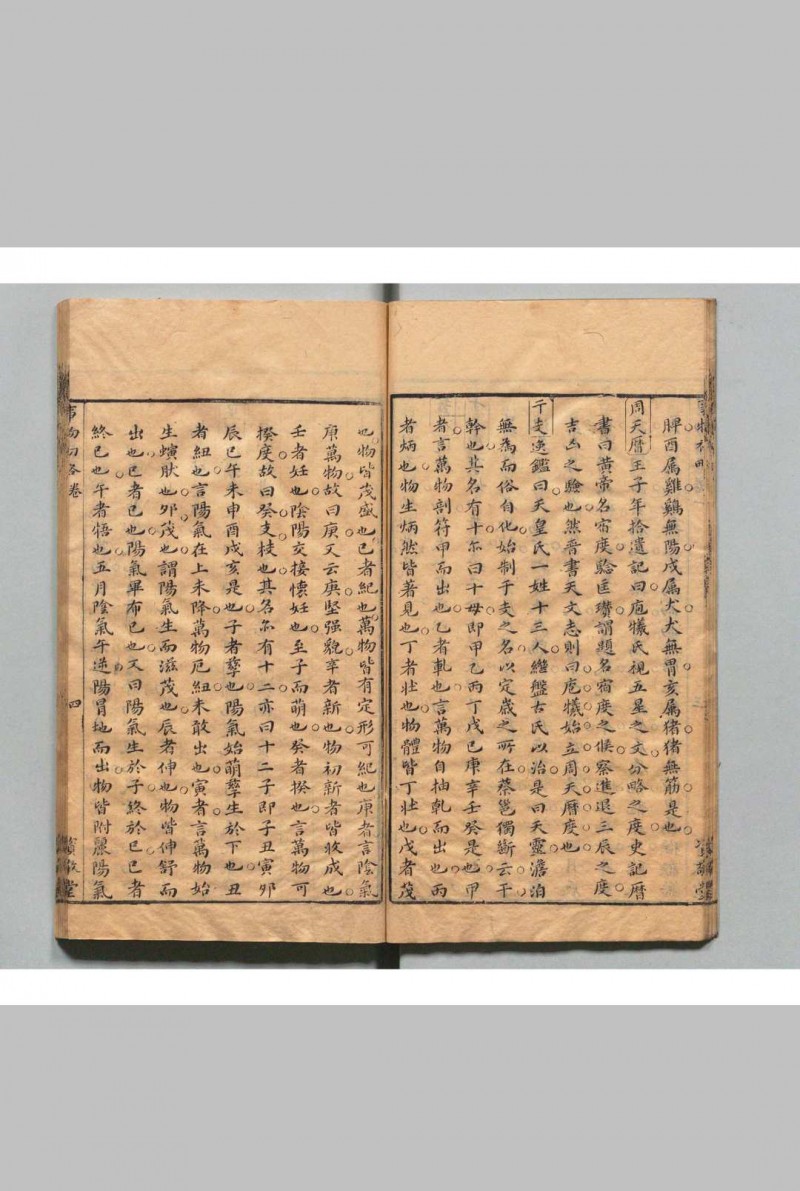 脾酉属雞雞無陽戌属犬犬無胃亥属猪猪無筋是也
周天暦王子年拾遺記曰庖犧氏視五星之文分晷之度史記暦
書曰黄帝名宿度騐臣瓚謂題名宿度之候察進退三辰之度
吉凶之驗也然晋書天文志則曰庖犧始立周天暦度也
干支逸鑑曰天皇氏一姓十三人繼盤古氏以治是曰天靈澹泊
無為而俗自化始制干支之名以定歳之所在蔡邕獨断云干
幹也其名有十亦曰十母即甲乙丙丁戊己庚辛壬癸是也甲
者言萬物剖符甲而出也乙者軋也言萬物自抽軋而出也丙
者炳也物生炳然皆著見也丁者壮也物體皆丁壮也戊者茂
也物皆茂盛也己者紀也萬物皆有定形可紀也庚者言陰氣
庚萬物故曰庚又云庚堅强貌辛者新也物初新者皆收成也
壬者妊也陰陽交接懐妊也至子而萌也癸者揆也言萬物可
揆度故曰癸支枝也其名亦有十二亦曰十二子即子丑寅卯
辰巳午未申酉戌亥是也子者孳也陽氣始萌孳生於下也丑
者紐也言陽氣在上未降萬物厄紐未敢出也寅者言萬物始
生螾肰也卯茂也謂陽氣生而滋茂也辰者伸也物皆伸舒而
出也巳者已也陽氣畢布已也又曰陽氣生於子終於巳巳者
終已也午者牾也五月陰氣午逆陽冒地而出物皆附麗陽氣
四